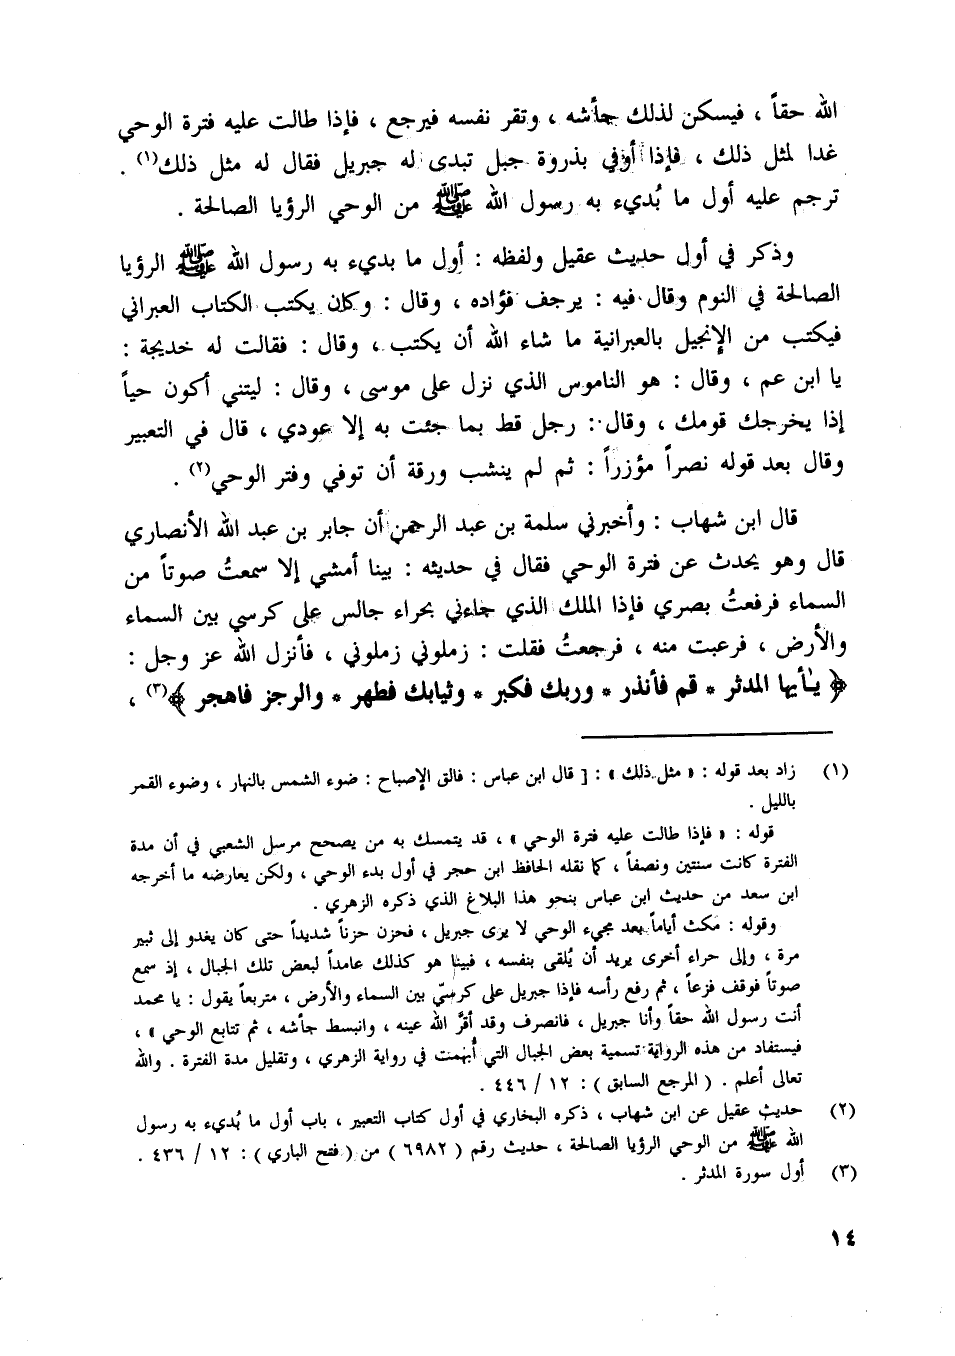 الله حقاً ، فيسكن لذلك جأشه ، وتقر نفسه فيرجع ، فإذا طالت عليه فترة الوحي
غدا لمثل ذلك ، فإذا أوفي بذروة جبل تبدى له جبريل فقال له مثل ذلك(١) .
ترجم عليه أول ما بُديء به رسول الله ﷺ من الوحي الرؤيا الصالحة .
وذكر في أول حديث عقيل ولفظه : أول ما بديء به رسول الله ﷺ الرؤيا
الصالحة في النوم وقال فيه : يرجف فؤاده ، وقال : وكان يكتب الكتاب العبراني
فيكتب من الإنجيل بالعبرانية ما شاء الله أن يكتب ، وقال : فقالت له خديجة :
يا ابن عم ، وقال : هو الناموس الذي نزل على موسى ، وقال : ليتني أكون حياً
إذا يخرجك قومك ، وقال : رجل قط بما جئت به إلا عودي ، قال في التعبير
وقال بعد قوله نصراً مؤزراً : ثم لم ينشب ورقة أن توفي وفتر الوحي(٢) .
قال ابن شهاب : وأخبرني سلمة بن عبد الرحمن أن جابر بن عبد الله الأنصاري
قال وهو يحدث عن فترة الوحي فقال في حديثه : بينا أمشي إلا سمعتُ صوتاً من
السماء فرفعتُ بصري فإذا الملك الذي جاءني بحراء جالس على كرسي بين السماء
والأرض ، فرعبت منه ، فرجعتُ فقلت : زملوني زملوني ، فأنزل الله عز وجل :
﴿ يـٰأيها المدثر * قم فأنذر * وربك فكبر * وثيابك فطهر * والرجز فاهجر ﴾(٣) ،
(١) زاد بعد قوله : « مثل ذلك » : [ قال ابن عباس : فالق الإصباح : ضوء الشمس بالنهار ، وضوء القمر
بالليل .
قوله : « فإذا طالت عليه فترة الوحي » ، قد يتمسك به من يصحح مرسل الشعبي في أن مدة
الفترة كانت سنتين ونصفاً ، كما نقله الحافظ ابن حجر في أول بدء الوحي ، ولكن يعارضه ما أخرجه
ابن سعد من حديث ابن عباس بنحو هذا البلاغ الذي ذكره الزهري .
وقوله : مكث أياماً بعد مجيء الوحي لا يرى جبريل ، فحزن حزناً شديداً حتى كان يغدو إلى ثبير
مرة ، وإلى حراء أخرى يريد أن يُلقى بنفسه ، فبينا هو كذلك عامداً لبعض تلك الجبال ، إذ سمع
صوتاً فوقف فزعاً ، ثم رفع رأسه فإذا جبريل على كرسيّ بين السماء والأرض ، متربعاً يقول : يا محمد
أنت رسول الله حقاً وأنا جبريل ، فانصرف وقد أقرَّ الله عينه ، وانبسط جأشه ، ثم تتابع الوحي » ،
فيستفاد من هذه الرواية تسمية بعض الجبال التي أُبهمت في رواية الزهري ، وتقليل مدة الفترة . والله
تعالى أعلم . ( المرجع السابق ) : ١٢ / ٤٤٦ .
(٢) حديث عقيل عن ابن شهاب ، ذكره البخاري في أول كتاب التعبير ، باب أول ما بُديء به رسول
الله ﷺ من الوحي الرؤيا الصالحة ، حديث رقم ( ٦٩٨٢ ) من ( فتح الباري ) : ١٢ / ٤٣٦ .
(٣) أول سورة المدثر .
١٤